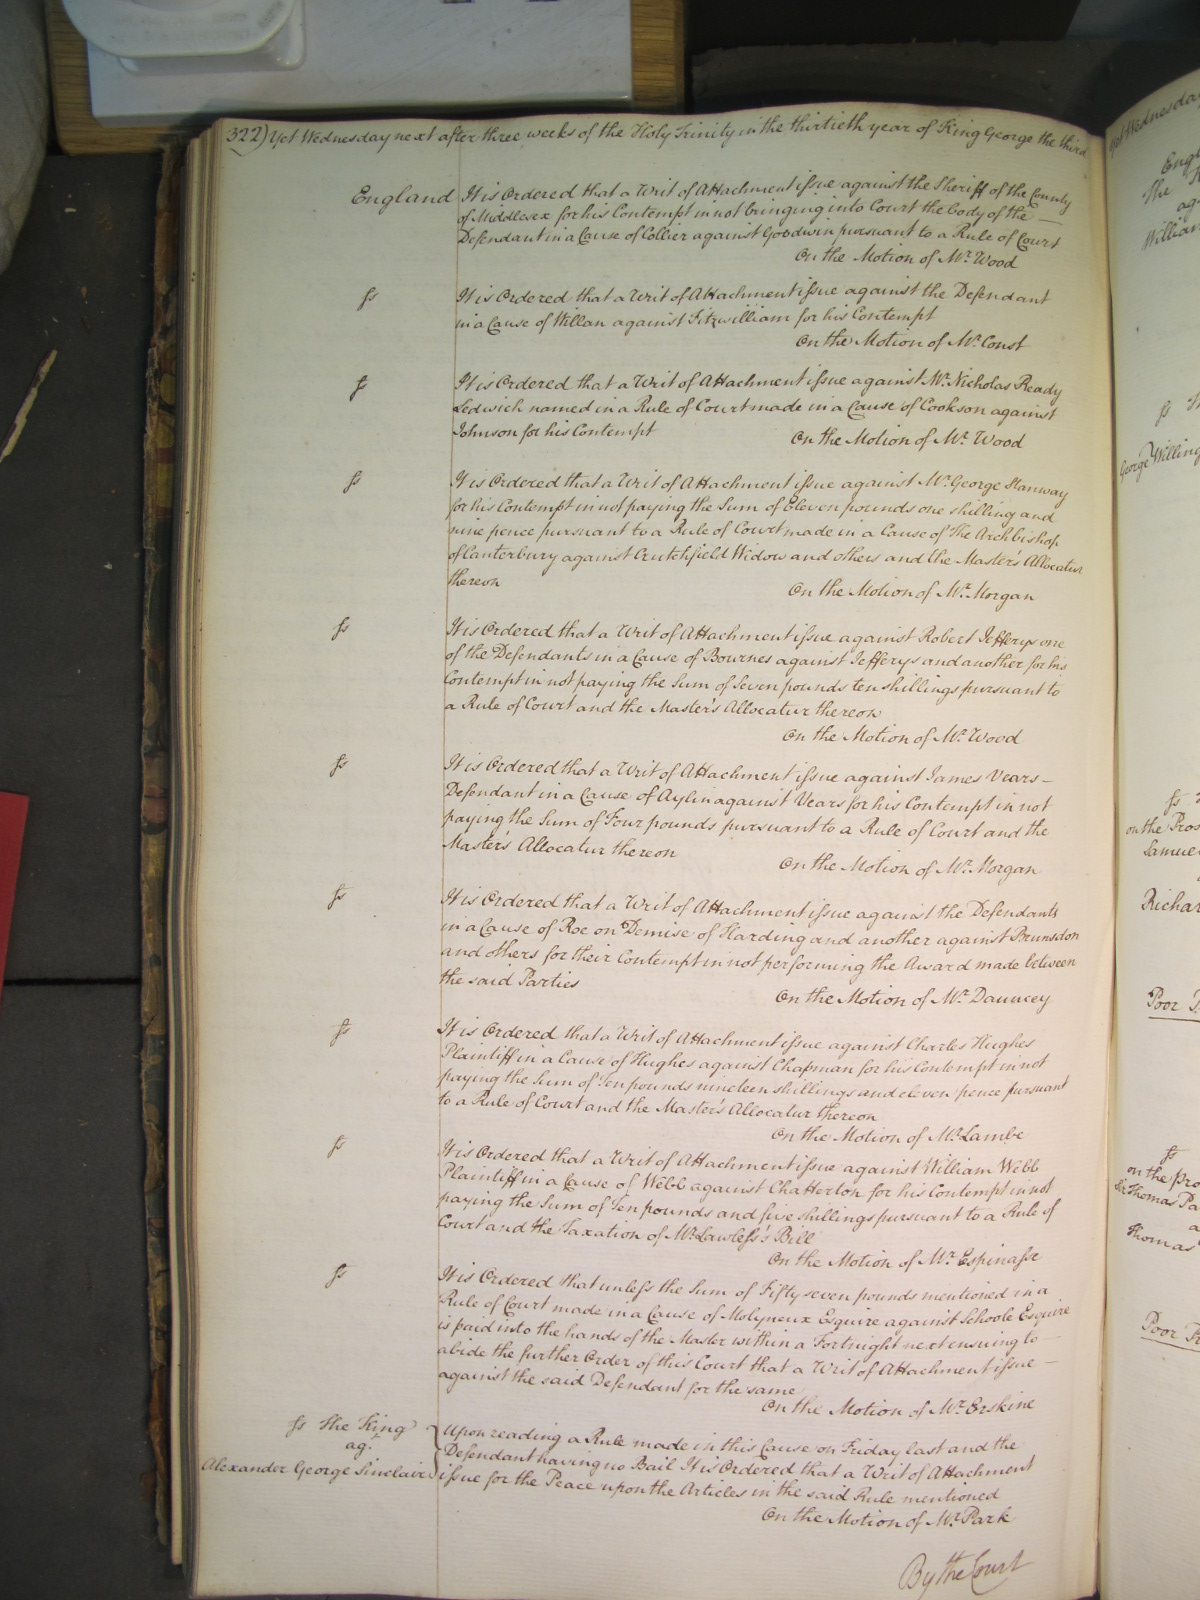 322) Yet Wednesday next after three weeks of the Holy Trinity in the thirtieth year of King George the third
England It is Ordered that a Writ of Attachment issue against the Sheriff of the County
of Middlesex for his Contempt in not bringing into Court the body of the —
Defendant in a Cause of Collier against Goodwin pursuant to a Rule of Court
On the Motion of Mr. Wood
ss It is Ordered that a Writ of Attachment issue against the Defendant
in a Cause of Willan against Fitzwilliam for his Contempt
On the Motion of Mr. Const
ss It is Ordered that a Writ of Attachment issue against Mr. Nicholas Ready
Ledwich named in a Rule of Court made in a Cause of Cookson against
Johnson for his Contempt On the Motion of Mr. Wood
ss It is Ordered that a Writ of Attachment issue against Mr. George Stanway
for his Contempt in not paying the Sum of Eleven pounds one shilling and
nine pence pursuant to a Rule of Court made in a Cause of The Archbishop
of Canterbury against Crutchfield Widow and others and the Master's Allocatur
thereon On the Motion of Mr. Morgan
ss It is Ordered that a Writ of Attachment issue against Robert Jefferys one
of the Defendants in a Cause of Bournes against Jefferys and another for his
Contempt in not paying the Sum of Seven pounds ten shillings pursuant to
a Rule of Court and the Master's Allocatur thereon
On the Motion of Mr. Wood
ss It is Ordered that a Writ of Attachment issue against James Vears —
Defendant in a Cause of Aylin against Vears for his Contempt in not
paying the Sum of Four pounds pursuant to a Rule of Court and the
Master's Allocatur thereon On the Motion of Mr. Morgan
ss It is Ordered that a Writ of Attachment issue against the Defendants
in a Cause of Roe on Demise of Harding and another against Brunsdon
and others for their Contempt in not performing the Award made between
the said Parties On the Motion of Mr. Dauncey
ss It is Ordered that a Writ of Attachment issue against Charles Hughes
Plaintiff in a Cause of Hughes against Chapman for his Contempt in not
paying the Sum of Ten pounds nineteen shillings and eleven pence pursuant
to a Rule of Court and the Master's Allocatur thereon
On the Motion of Mr. Lambe
ss It is Ordered that a Writ of Attachment issue against William Webb
Plaintiff in a Cause of Webb against Chatterton for his Contempt in not
paying the Sum of Ten pounds and five shillings pursuant to a Rule of
Court and the Taxation of Mr. Lawless's Bill
On the Motion of Mr. Espinasse
ss It is Ordered that unless the Sum of Fifty seven pounds mentioned in a
Rule of Court made in a Cause of Molyneux Esquire against Schoole Esquire
is paid into the hands of the Master within a Fortnight next ensuing to —
abide the further Order of this Court that a Writ of Attachment issue —
against the said Defendant for the same
On the Motion of Mr. Erskine
ss The King
agt.
Alexander George Sinclair
Upon reading a Rule made in this Cause on Friday last and the
Defendant having no Bail It is Ordered that a Writ of Attachment
issue for the Peace upon the Articles in the said Rule mentioned
On the Motion of Mr. Park
By the Court
Yet Wednesday
The
ag
ss
George
ss
on the
Poor
ss
on the
Sir Thomas
a
Thomas
Poor